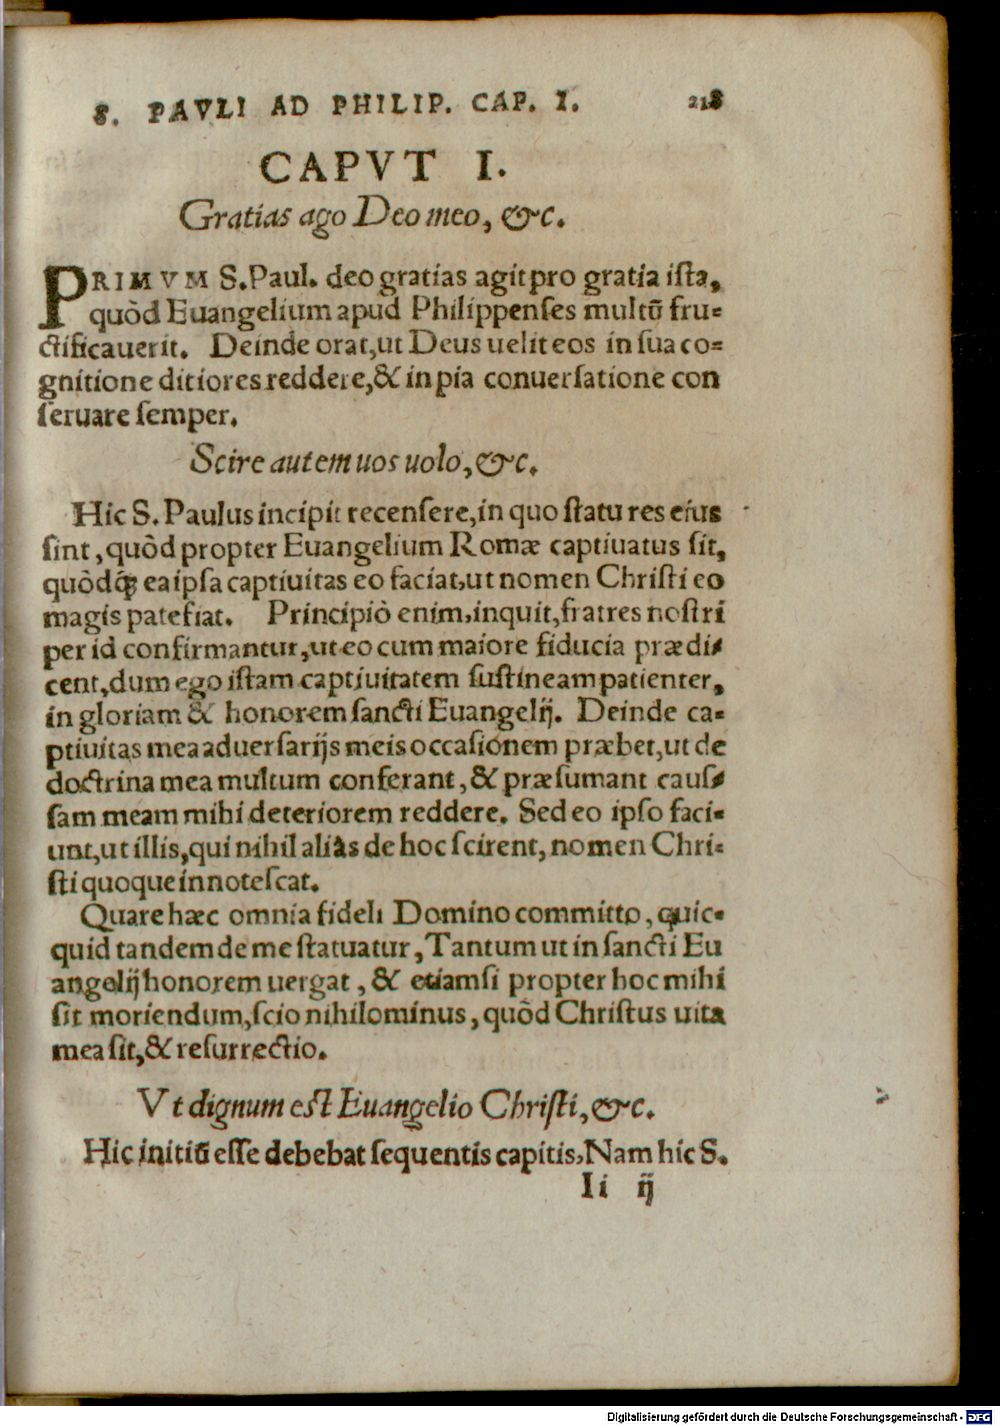 S. PAVLI AD PHILIP. CAP. I. 218
CAPVT I.
Gratias ago Deo meo, &c.
PRIMVM S. Paul. deo gratias agit pro gratia ista,
quòd Euangelium apud Philippenses multũ fru-
ctificauerit. Deinde orat, ut Deus uelit eos in sua co-
gnitione ditiores reddere, & in pia conuersatione con
seruare semper.
Scire autem uos uolo, &c.
Hic S. Paulus incipit recensere, in quo statu res eius
sint, quòd propter Euangelium Romæ captiuatus sit,
quòdq́; ea ipsa captiuitas eo faciat, ut nomen Christi eo
magis patefiat. Principiò enim, inquit, fratres nostri
per id confirmantur, ut eo cum maiore fiducia prædi-
cent, dum ego istam captiuitatem sustineam patienter,
in gloriam & honorem sancti Euangelij. Deinde ca-
ptiuitas mea aduersarijs meis occasionem præbet, ut de
doctrina mea multum conferant, & præsumant caus-
sam meam mihi deteriorem reddere. Sed eo ipso faci-
unt, ut illis, qui nihil aliàs de hoc scirent, nomen Chri-
sti quoque innotescat.
Quare hæc omnia fideli Domino committo, quic-
quid tandem de me statuatur, Tantum ut in sancti Eu
angelij honorem uergat, & etiamsi propter hoc mihi
sit moriendum, scio nihilominus, quòd Christus uita
mea sit, & resurrectio.
Vt dignum est Euangelio Christi, &c.
Hic initiũ esse debebat sequentis capitis, Nam hic S.
Ii ij
Digitalisierung gefördert durch die Deutsche Forschungsgemeinschaft - DFG